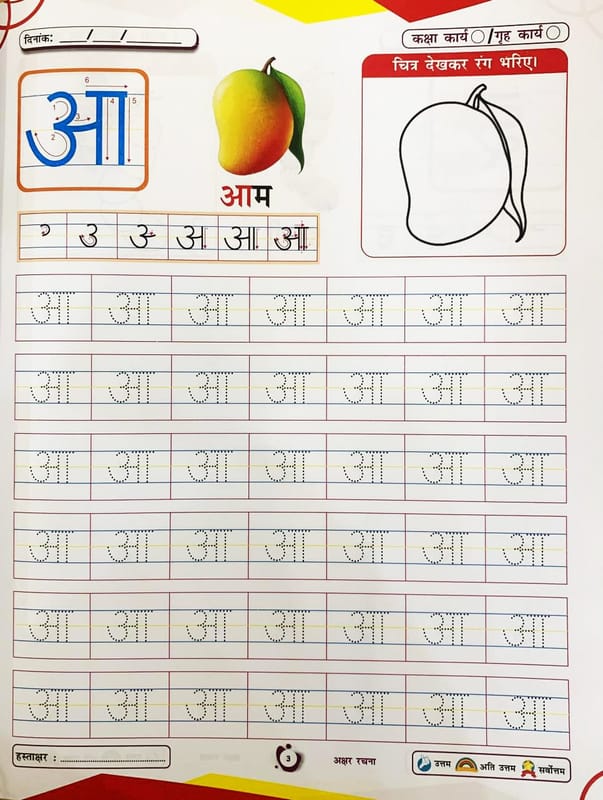 दिनांक: ___/___/___
कक्षा कार्य /गृह कार्य
चित्र देखकर रंग भरिए।
आ
1 2 3 4 5 6
आम
१ उ उ- अ आ आ
आ आ आ आ आ आ आ
आ आ आ आ आ आ आ
आ आ आ आ आ आ आ
आ आ आ आ आ आ आ
आ आ आ आ आ आ आ
आ आ आ आ आ आ आ
हस्ताक्षर : ........................
3
अक्षर रचना
उत्तम अति उत्तम सर्वोत्तम